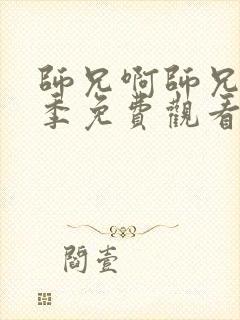 師兄啊師兄
季免費觀看
閻壹